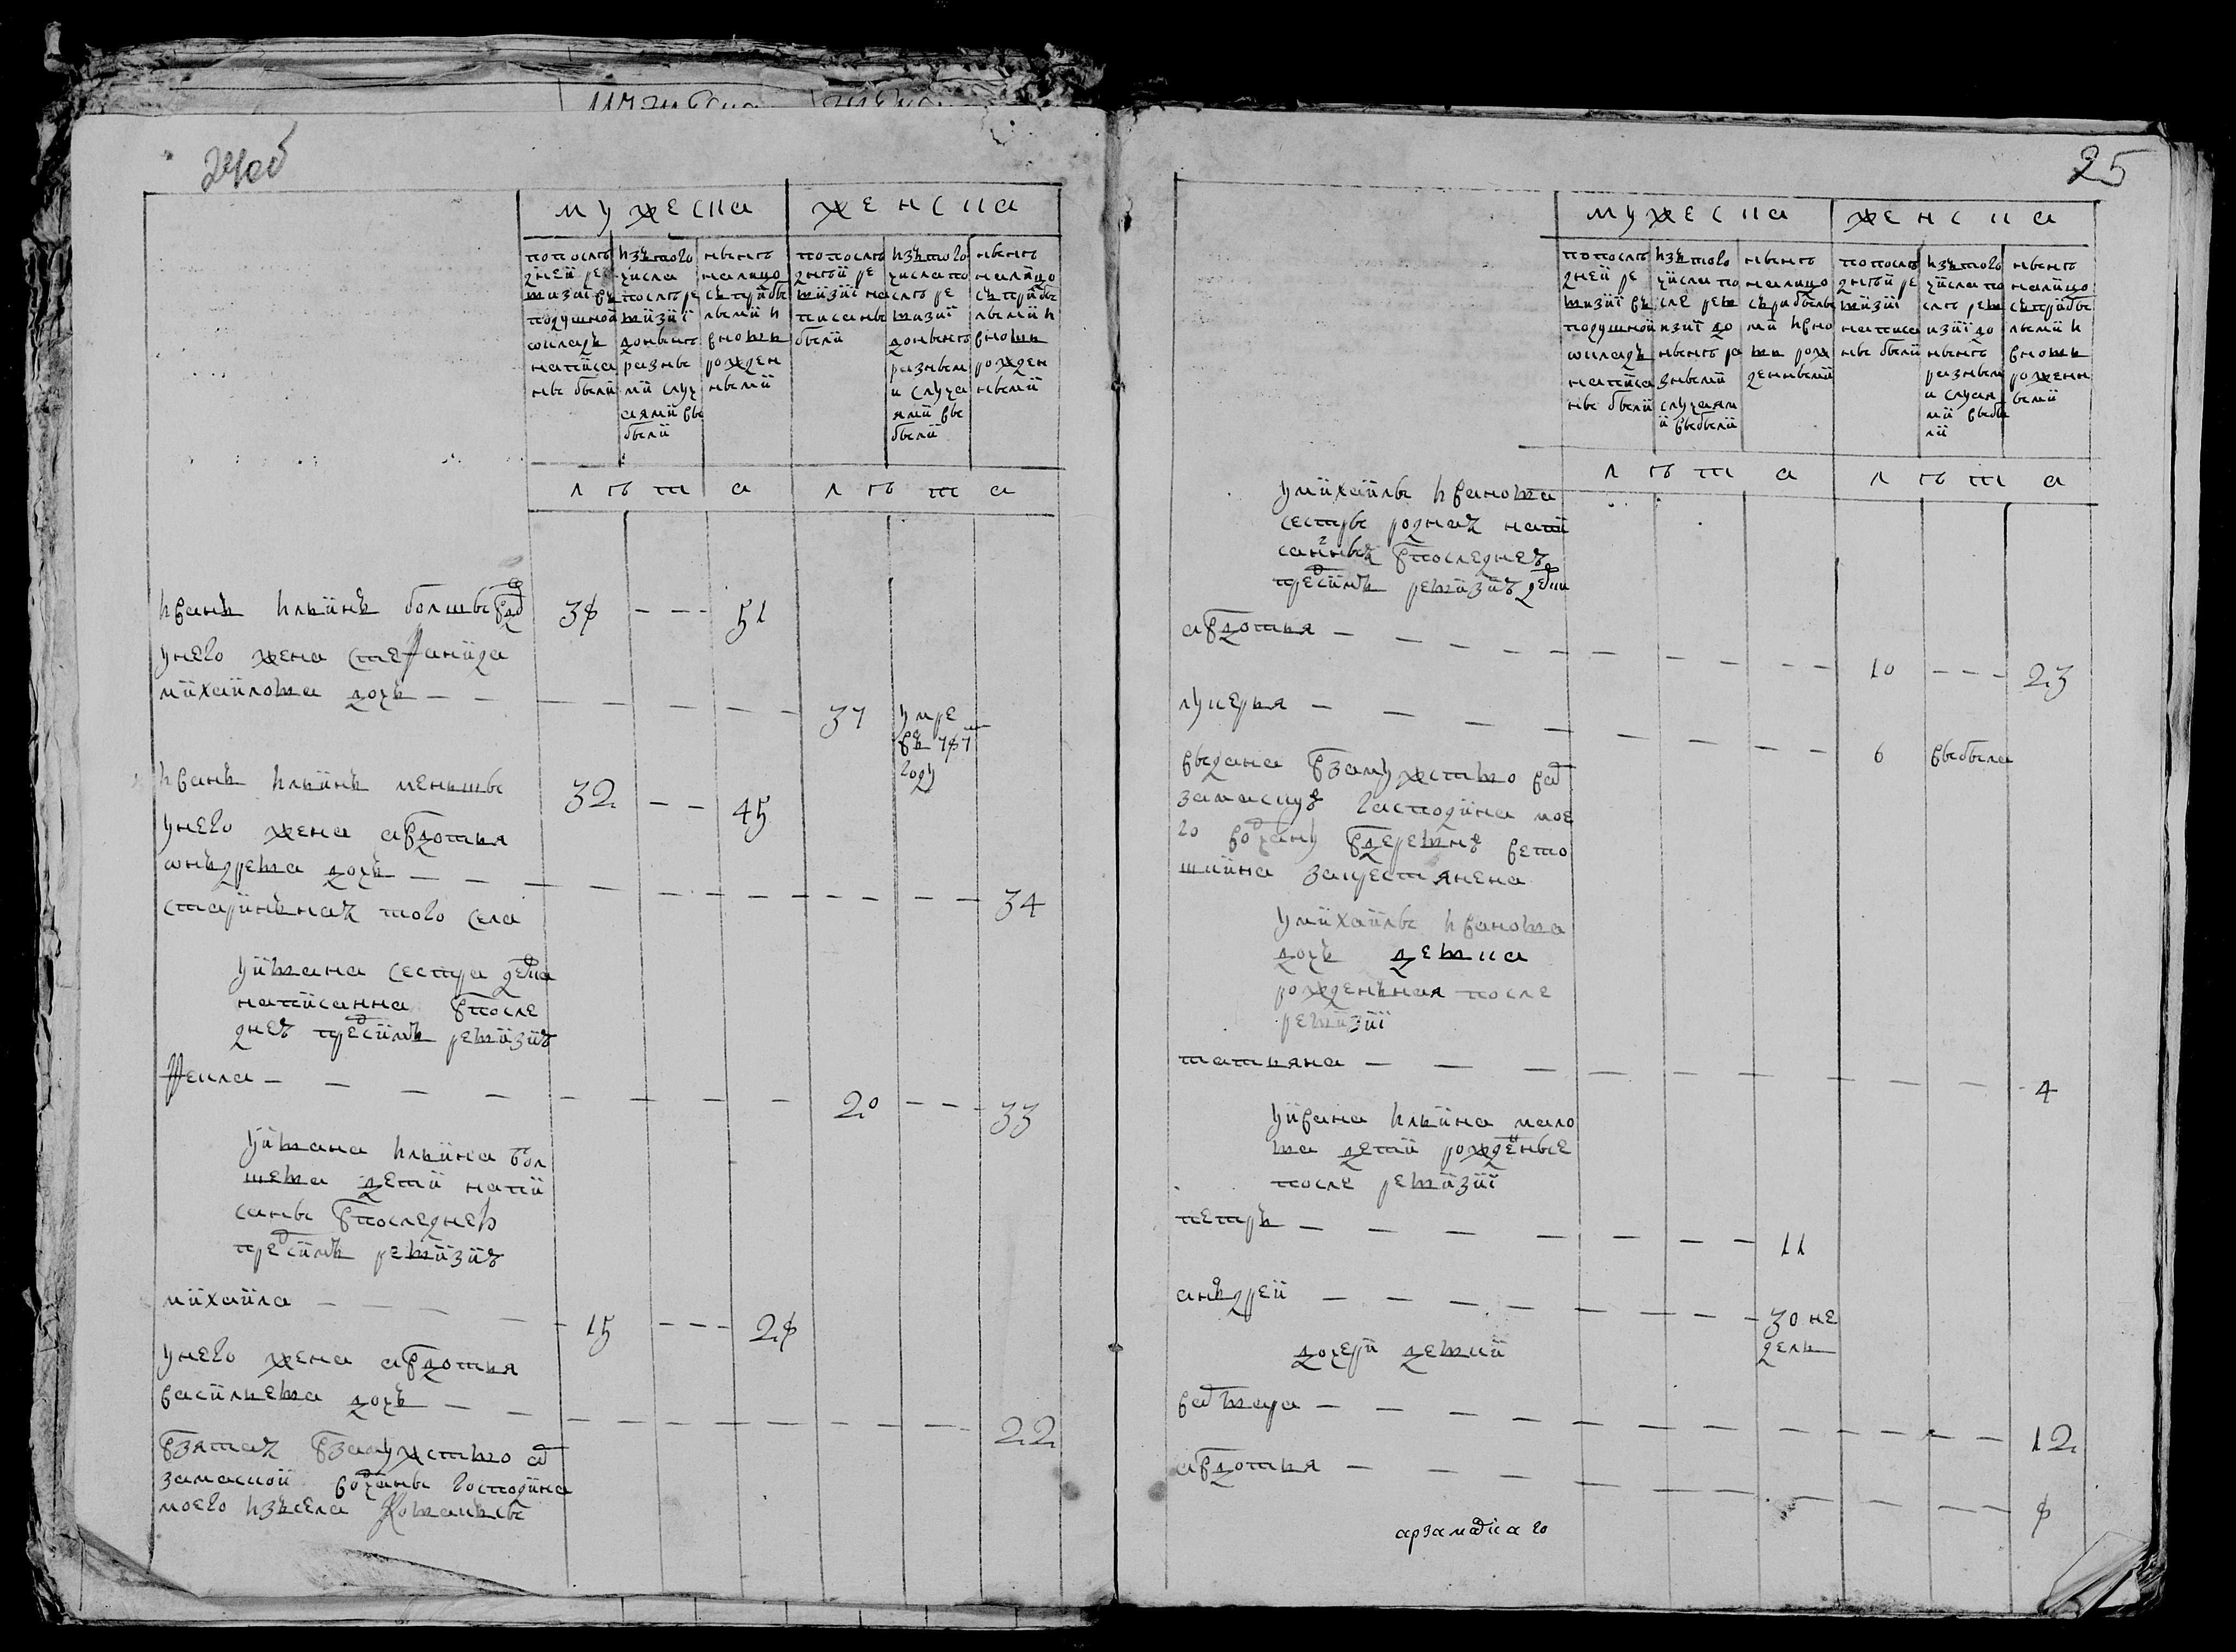 24об
мужеска женска
попослѣ
дней ре
визиі въ
подушной
окладъ
написа
ны были
изътого
числа
послѣ ре
визиі
донынѣ
разны
ми случ
аями вы
были
нынѣ
налицо
съприбы
лыми и
вновь
рожден
ными
попослѣ
днѣи ре
визиі на
писаны
были
изътого
числа по
слѣ ре
визиі
донынѣ
разным
и случа
ями вы
были
нынѣ
налицо
съприбы
лыми и
вновь
рожден
ными
лѣта лѣта
иванъ ильинъ болшы 38 --- 51
унего жена стефанида
михаилова дочь — — 37 умре
въ 787
году
иванъ ильинъ меньшы 32 -- 45
унего жена авдотья
онъдрева дочь — — 34
старинъная того села
уивана сестра девка
написанна впосле
дней предсимъ ревизиѣ
фекла — — 20 --- 33
уивана ильина бол
шева дети напи
саны впоследней
предсимъ ревизиѣ
михаила — — 15 --- 28
унего жена авдотья
васильева дочь — — 22
взятая взамужство
замаскои вотчины господина
моего изъсела
25
мужеска женска
попослѣ
дней ре
визиі въ
подушной
окладъ
написа
ны были
изътого
числа по
сле рев
изиі до
нынѣ ра
зными
случаям
и выбыли
нынѣ
налицо
съприбылы
ми ивно
вь рож
денными
попослѣ
днѣи ре
визиі
написа
ны были
изътого
числа по
слѣ рев
изиі до
нынѣ
разным
и случая
ми выбы
ли
нынѣ
налицо
съприбы
лыми и
вновь
рожденн
ыми
лѣта лѣта
умихаилы иванова
сестры родная напи
санныя впоследнея
предсимъ ревизия девки
авдотья — — 10 --- 23
лукерья — — 6 выбыла
выдана взамужество
замаскую гасподина мое
го вотчину вдеревнѣ
закрестьянена
умихаилы иванова
дочь девка
рожденъная после
ревизиі
татьяна — — 4
уивана ильина мало
ва дети рожденые
после ревизиі
петръ — — 11
анъдрей — — 30 не
дель
дочери девки
варвара — — 12
авдотья — — 8
арзамаскаго